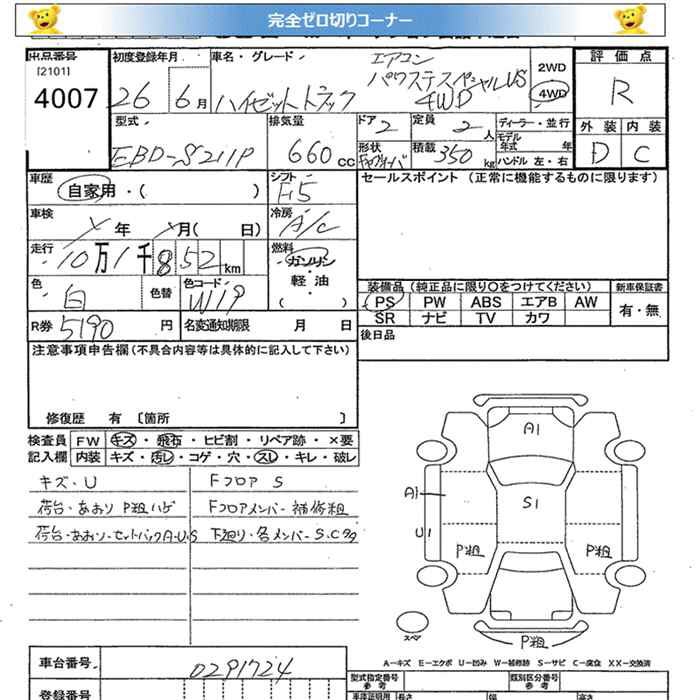 完全ゼロ切りコーナー
出品番号 初度登録年月 車名・グレード エアコン 評価点
[2101] 4007 26 6月 ハイゼットトラック パワステスペシャルVS 4WD 2WD 4WD R
型式 排気量 ドア 2 定員 2人 ディーラー・並行 外装 内装
EBD-S211P 660cc 形状 積載 350kg モデル年式 年 D C
ハンドル 左・右
車歴 自家用・( ) シフト F5 セールスポイント (正常に機能するものに限ります)
車検 年 月( 日) 冷房 A/C
走行 10万1千852km 燃料 ガソリン・軽油・( )
色 白 色替 色コード W19 装備品(純正品に限り○をつけてください) 新車保証書
PS PW ABS エアB AW 有・無
SR ナビ TV カワ
R券 5190円 名変通知期限 月 日 後日品
注意事項申告欄(不具合内容等は具体的に記入して下さい)
修復歴 有 [箇所 ]
検査員 FW キズ・飛石・ヒビ割・リペア跡・×要
記入欄 内装 キズ・汚レ・コゲ・穴・スレ・キレ・破レ
キズ・U FフロアS
荷台・あおりP粗ハゲ Fフロアメンバー補修粗
荷台・あおり・セットバックA・U・S 下廻り・各メンバーS.C
A1
A1 S1
U1
P粗 P粗
スペア
P粗
A-キズ E-エクボ U-凹み W-補修跡 S-サビ C-腐食 XX-交換済
車台番号 0291724 型式指定番号 参考 類別区分番号 参考
登録番号 車庫証明用 参考 長さ 幅 高さ